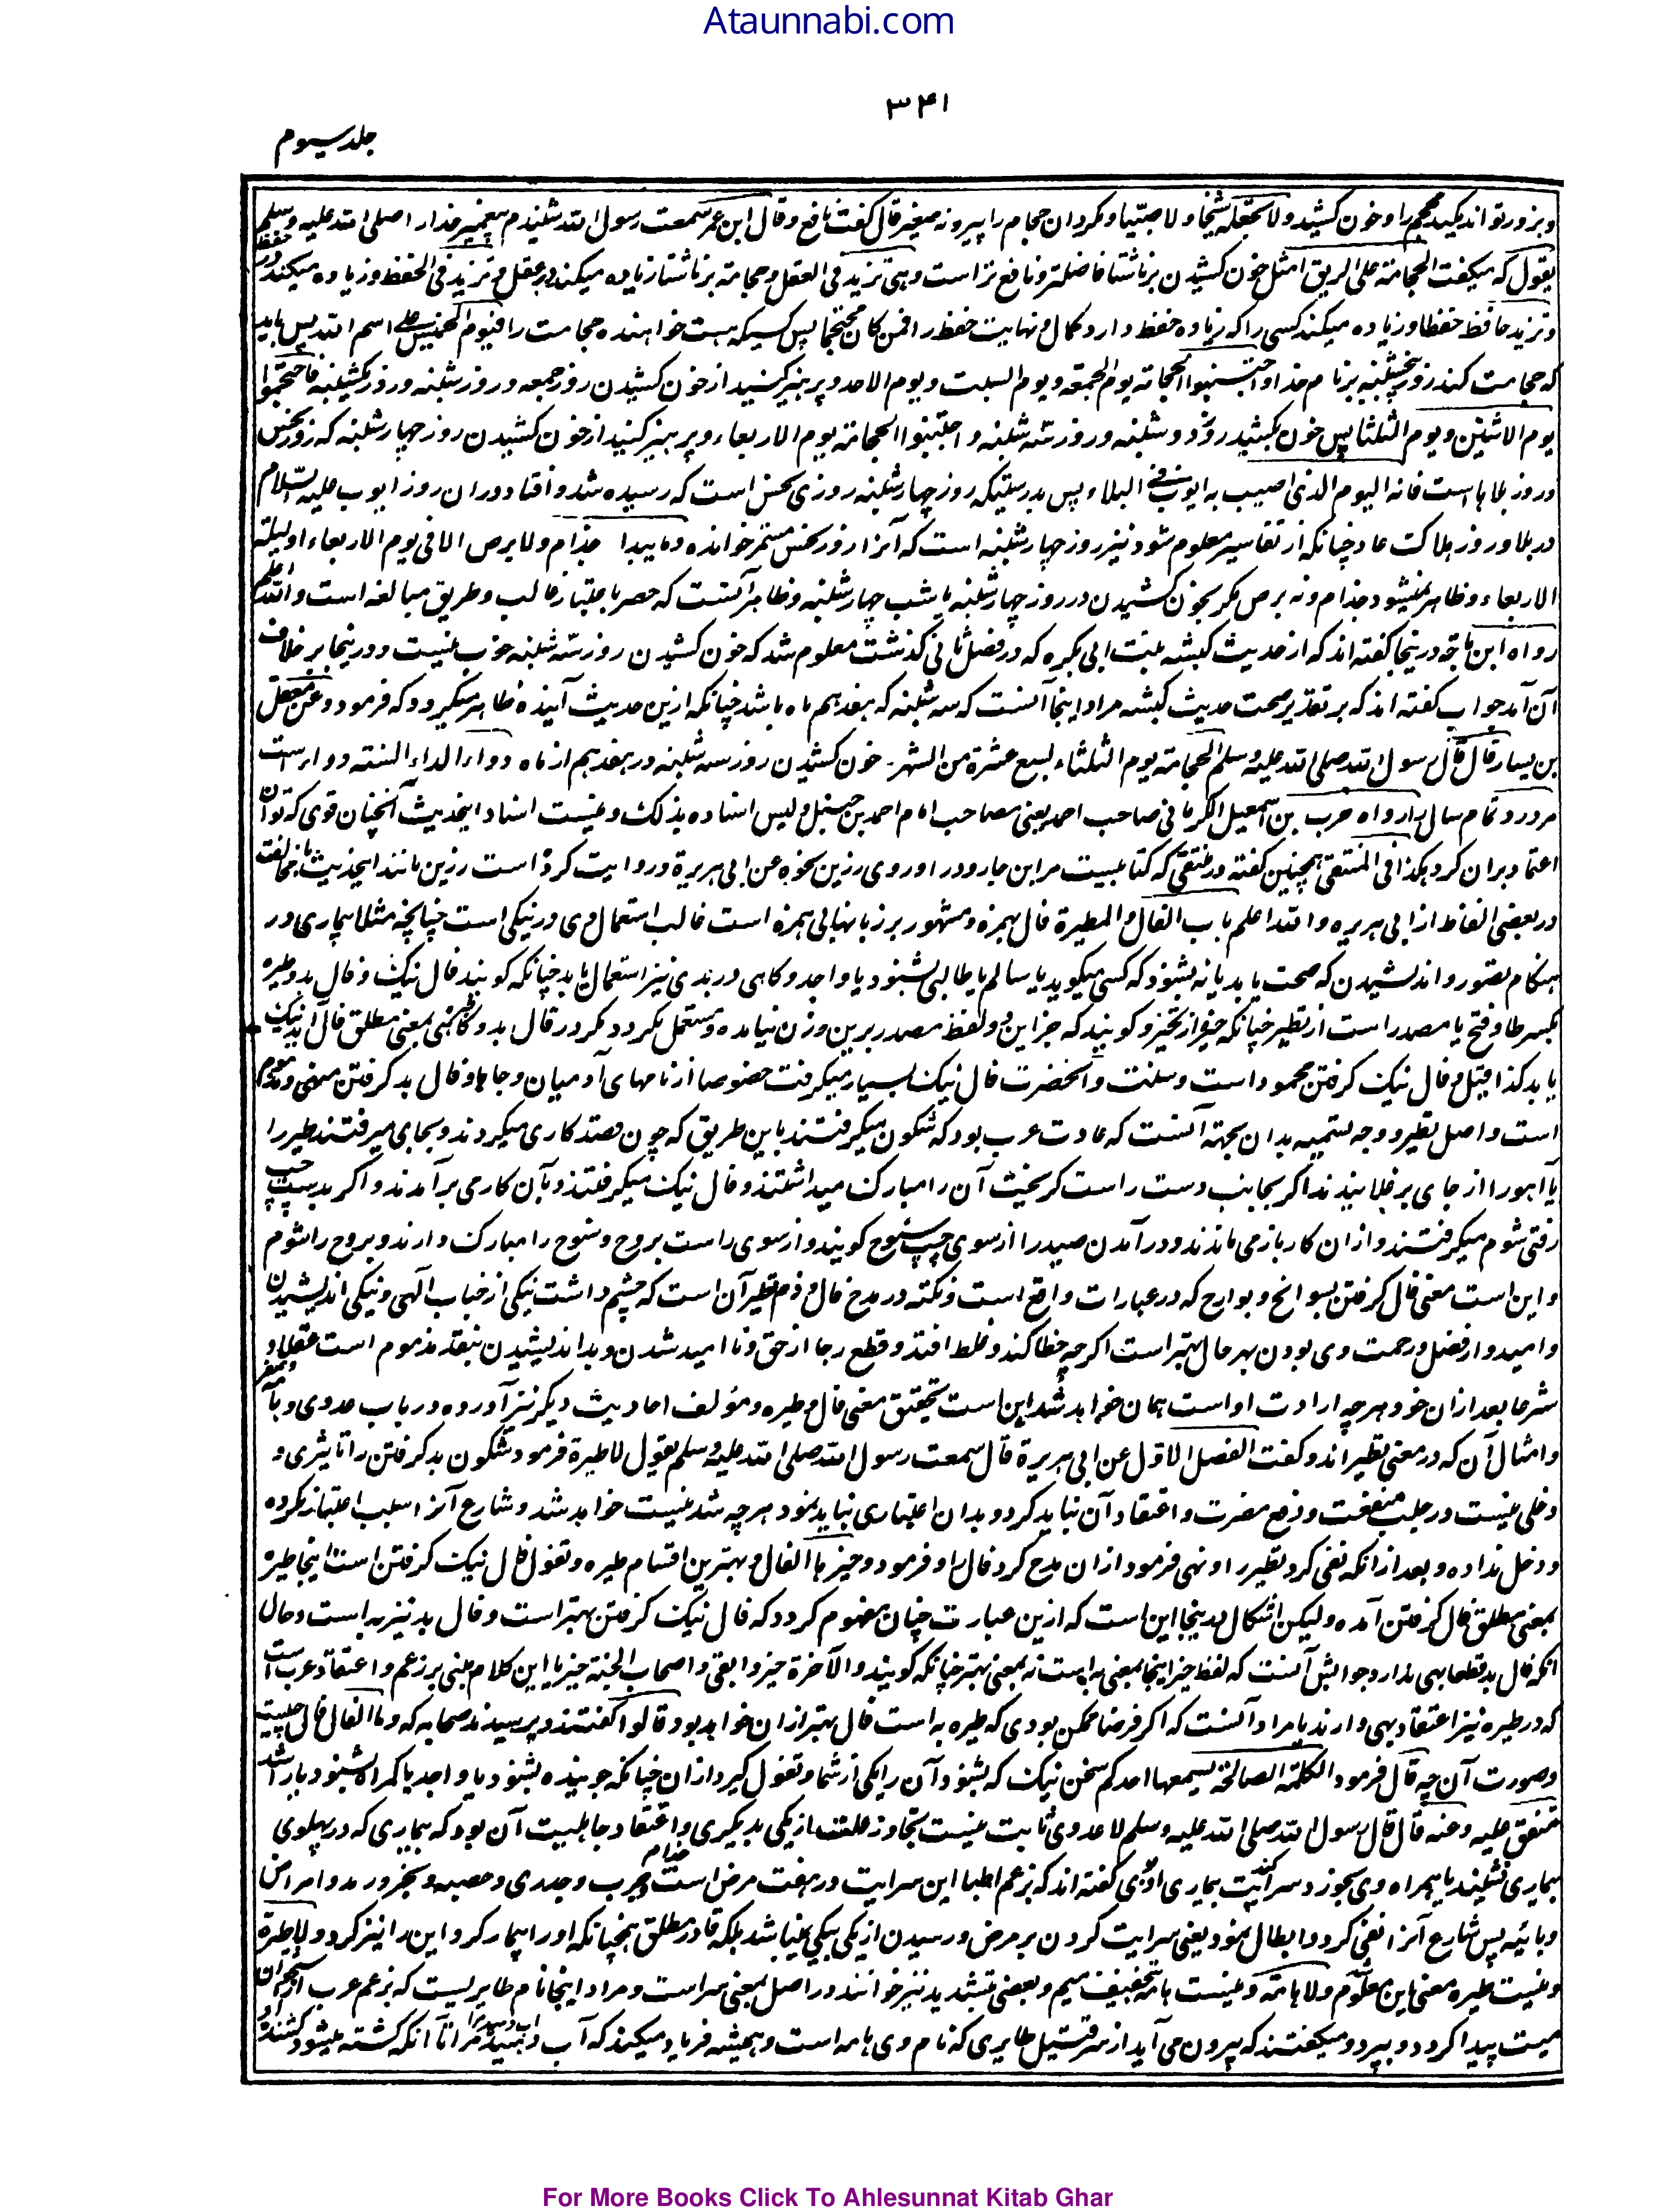 Ataunnabi.com
۳۴۱
جلد سیوم
و بزور تواند یکید محجم را و خون کشید ولا تجعله شیخا ولا صبیا و مگردان حجام را پیر و نه صغیر قال گفت نافع و قال ابن عمر سمعت رسول الله شنیدم پیغمبر خدا را صلی الله علیه وسلم
یقول که میگفت الحجامة علی الریق امثل خون کشیدن بر ناشتا فاضلتر و نافع تر است وهی تزید فی العقل و حجامة بر ناشتا زیاده میکند در عقل و تزید فی الحفظ و زیاده میکند در حفظ
و تزید حافظ حفظا و زیاده میکند کسی را که زیاده حفظ دارد کمال و نهایت حفظ را فمن کان محتجما پس کسیکه هست خواهنده حجامت را فیوم الخمیس علی اسم الله پس باید
که حجامت کند روز پنجشنبه بر نام خدا و اجتنبوا الحجامة یوم الجمعة و یوم السبت و یوم الاحد و پرهیز کنید از خون کشیدن روز جمعه و روز شنبه و روز یکشنبه فاحتجموا
یوم الاثنین و یوم الثلثا پس خون بکشید روز دوشنبه و روز سه شنبه و اجتنبوا الحجامة یوم الاربعاء و پرهیز کنید از خون کشیدن روز چهارشنبه که روز نحس
و روز بلاها است فانه الیوم الذی اصیب به ایوب فی البلاء پس بدرستیکه روز چهارشنبه روزی نحس است که رسیده شد و افتاد در ان روز ایوب علیه السلام
در بلا و روز هلاکت عاد چنانکه از تفاسیر معلوم شود نیز روز چهارشنبه است که آنرا روز نحس مستمر خوانده و ما یبدا جذام ولا برص الا فی یوم الاربعاء او لیلة
الاربعاء و ظاهر نمیشود جذام و نه برص مگر بخون کشیدن در روز چهارشنبه یا شب چهارشنبه و ظاهر آنست که حصر باعتبار غالب و طریق مبالغه است والله اعلم
رواه ابن ماجه درینجا گفته اند که از حدیث کبشه بنت ابی بکره که در فصل ثانی گذشت معلوم شد که خون کشیدن روز سه شنبه خوب نیست و درینجا بر خلاف
آن آمد جواب گفته اند که بر تقدیر صحت حدیث کبشه مراد اینجا آنست که سه شنبه که هفدهم ماه باشد چنانکه ازین حدیث آینده ظاهر میگردد که فرمود و عن معقل
بن یسار قال قال رسول الله صلی الله علیه وسلم الحجامة یوم الثلثاء لسبع عشرة من الشهر خون کشیدن روز سه شنبه در هفدهم از ماه دواء الداء السنة دوا است
مر درد تمام سال را رواه حرب بن اسمعیل الکرمانی صاحب احمد یعنی مصاحب امام احمد بن حنبل و لیس اسناده بذلک و نیست اسناد اینحدیث آنچنان قوی که توان
اعتماد بران کرد هکذا فی المنتقی همچنین گفته در منتقی که کتابیست مر ابن جارود را و روی رزین نحوه عن ابی هریرة و روایت کرده است رزین مانند اینحدیث با مخالفت
در بعضی الفاظ از ابی هریره والله اعلم باب الفال و الطیرة فال بهمزه و مشهور بر زبانها بی همزه است غالب استعمال وی در نیکی است چنانچه مثلا بیماری در
هنگام تصور و اندیشیدن که صحت یابد یا نه بشنود که کسی میگوید یا سالم یا طالبی بشنود یا واجد و گاهی در بدی نیز استعمال یابد چنانکه گویند فال نیک و فال بد و طیره
بکسر طا و فتح یا مصدر است از تطیر چنانکه خیره از تخیر و گویند که جز این دو لفظ مصدر برین وزن نیامده و مستعمل نگردد مگر در فال بد و گاهی بمعنی مطلق فال آید نیک
یا بد کذا قیل و فال نیک گرفتن محمود است و سنت و آنحضرت فال نیک بسیار میگرفت خصوصا از نامهای آدمیان و جاها و فال بد گرفتن منهی و مذموم
است و اصل تطیر و وجه تسمیه بدان بجهة آنست که عادت عرب بود که شگون میگرفتند باین طریق که چون قصد کاری میکردند و بجای میرفتند طیر را
یا آهو را از جای برغلانیدند اگر بجانب دست راست گریخت آن را مبارک میداشتند و فال نیک میگرفتند و بآن کاری برآمدند و اگر بدست چپ
رفتی شوم میگرفتند و ازان کار باز می ماندند و در آمدن صید را از سوی چپ سنوح گویند و از سوی راست بروح و سنوح را مبارک دارند و بروح را شوم
و این است معنی فال گرفتن بسوانح و بوارح که در عبارات واقع است و نکته در مدح فال و ذم تطیر آن است که چشم داشت نیکی از جناب الهی و نیکی اندیشیدن
و امیدوار فضل و رحمت وی بودن بهر حال بهتر است اگرچه خطا کند و غلط افتد و قطع رجا از حق و نا امید شدن و بد اندیشیدن بنقد مذموم است عقلا و
شرعا بعد ازان خود هرچه ارادت او است همان خواهد شد این است تحقیق معنی فال و طیره و مولف احادیث دیگر نیز آورده در باب عدوی و هامه
و امثال آن که در معنی تطیر اند و گفت الفصل الاول عن ابی هریرة قال سمعت رسول الله صلی الله علیه وسلم یقول لا طیرة فرمود شگون بد گرفتن را تاثیری و
دخلی نیست در جلب منفعت و دفع مضرت و اعتقاد آن نباید کرد و بدان اعتباری نباید نمود هرچه شدنیست خواهد شد و شارع آنرا سبب اعتبار نکرده
و دخل نداده و بعد ازانکه نفی کرد تطیر را و نهی فرمود ازان مدح کرد فال را و فرمود و خیرها الفال و بهترین اقسام طیره و تفول فال نیک گرفتن است اینجا طیره
بمعنی مطلق فال گرفتن آمده و لیکن اشکال درینجا این است که ازین عبارت چنان مفهوم گردد که فال نیک گرفتن بهتر است و فال بد نیز به است و حال
انکه فال بد قطعا بهی ندارد و جوابش آنست که لفظ خیر اینجا بمعنی به است نه بمعنی بهتر چنانکه گویند والآخرة خیر و ابقی و اصحاب الجنة خیر یا این کلام مبنی بر زعم و اعتقاد عرب است
که در طیره نیز اعتقاد بهی دارند یا مراد آنست که اگر فرضا ممکن بودی که طیره به است فال بهتر ازان خواهد بود قالوا گفتند و پرسیدند صحابه که و ما الفال فال چیست
و صورت آن چه قال فرمود الکلمة الصالحة یسمعها احدکم سخن نیک که بشنود آن را یکی از شما و تفول گیرد ازان چنانکه جوینده بشنود یا واجد یا گمراه بشنود یا راشد
متفق علیه و عنه قال قال رسول الله صلی الله علیه وسلم لا عدوی ثابت نیست تجاوز علت از یکی بدیگری و اعتقاد جاهلیت آن بود که بیماری که در پهلوی
بیماری نشیند یا همراه وی بخورد سرایت کند بیماری او بوی گفته اند که بزعم اطبا این سرایت در هفت مرض است جذام و جرب و جدری و حصبه و بخر و رمد و امراض
وبائیه پس شارع آنرا نفی کرد و ابطال نمود یعنی سرایت کردن بر مرض و رسیدن از یکی بیکی نمیباشد بلکه قادر مطلق همچنانکه او را بیمار کرد این را نیز کرد ولا طیرة
و نیست طیره معنی این معلوم ولا هامة و نیست هامه بتخفیف میم و بعضی بتشدید نیز خوانند در اصل بمعنی سر است و مراد اینجا نام طایریست که بزعم عرب از استخوان
میت پیدا گردد و بپرد و میگفتند که بیرون می آید از سر قتیل طایری که نام وی هامه است و همیشه فریاد میکند که آب دهید مرا تا آنکه کشته میشود کشنده او
For More Books Click To Ahlesunnat Kitab Ghar